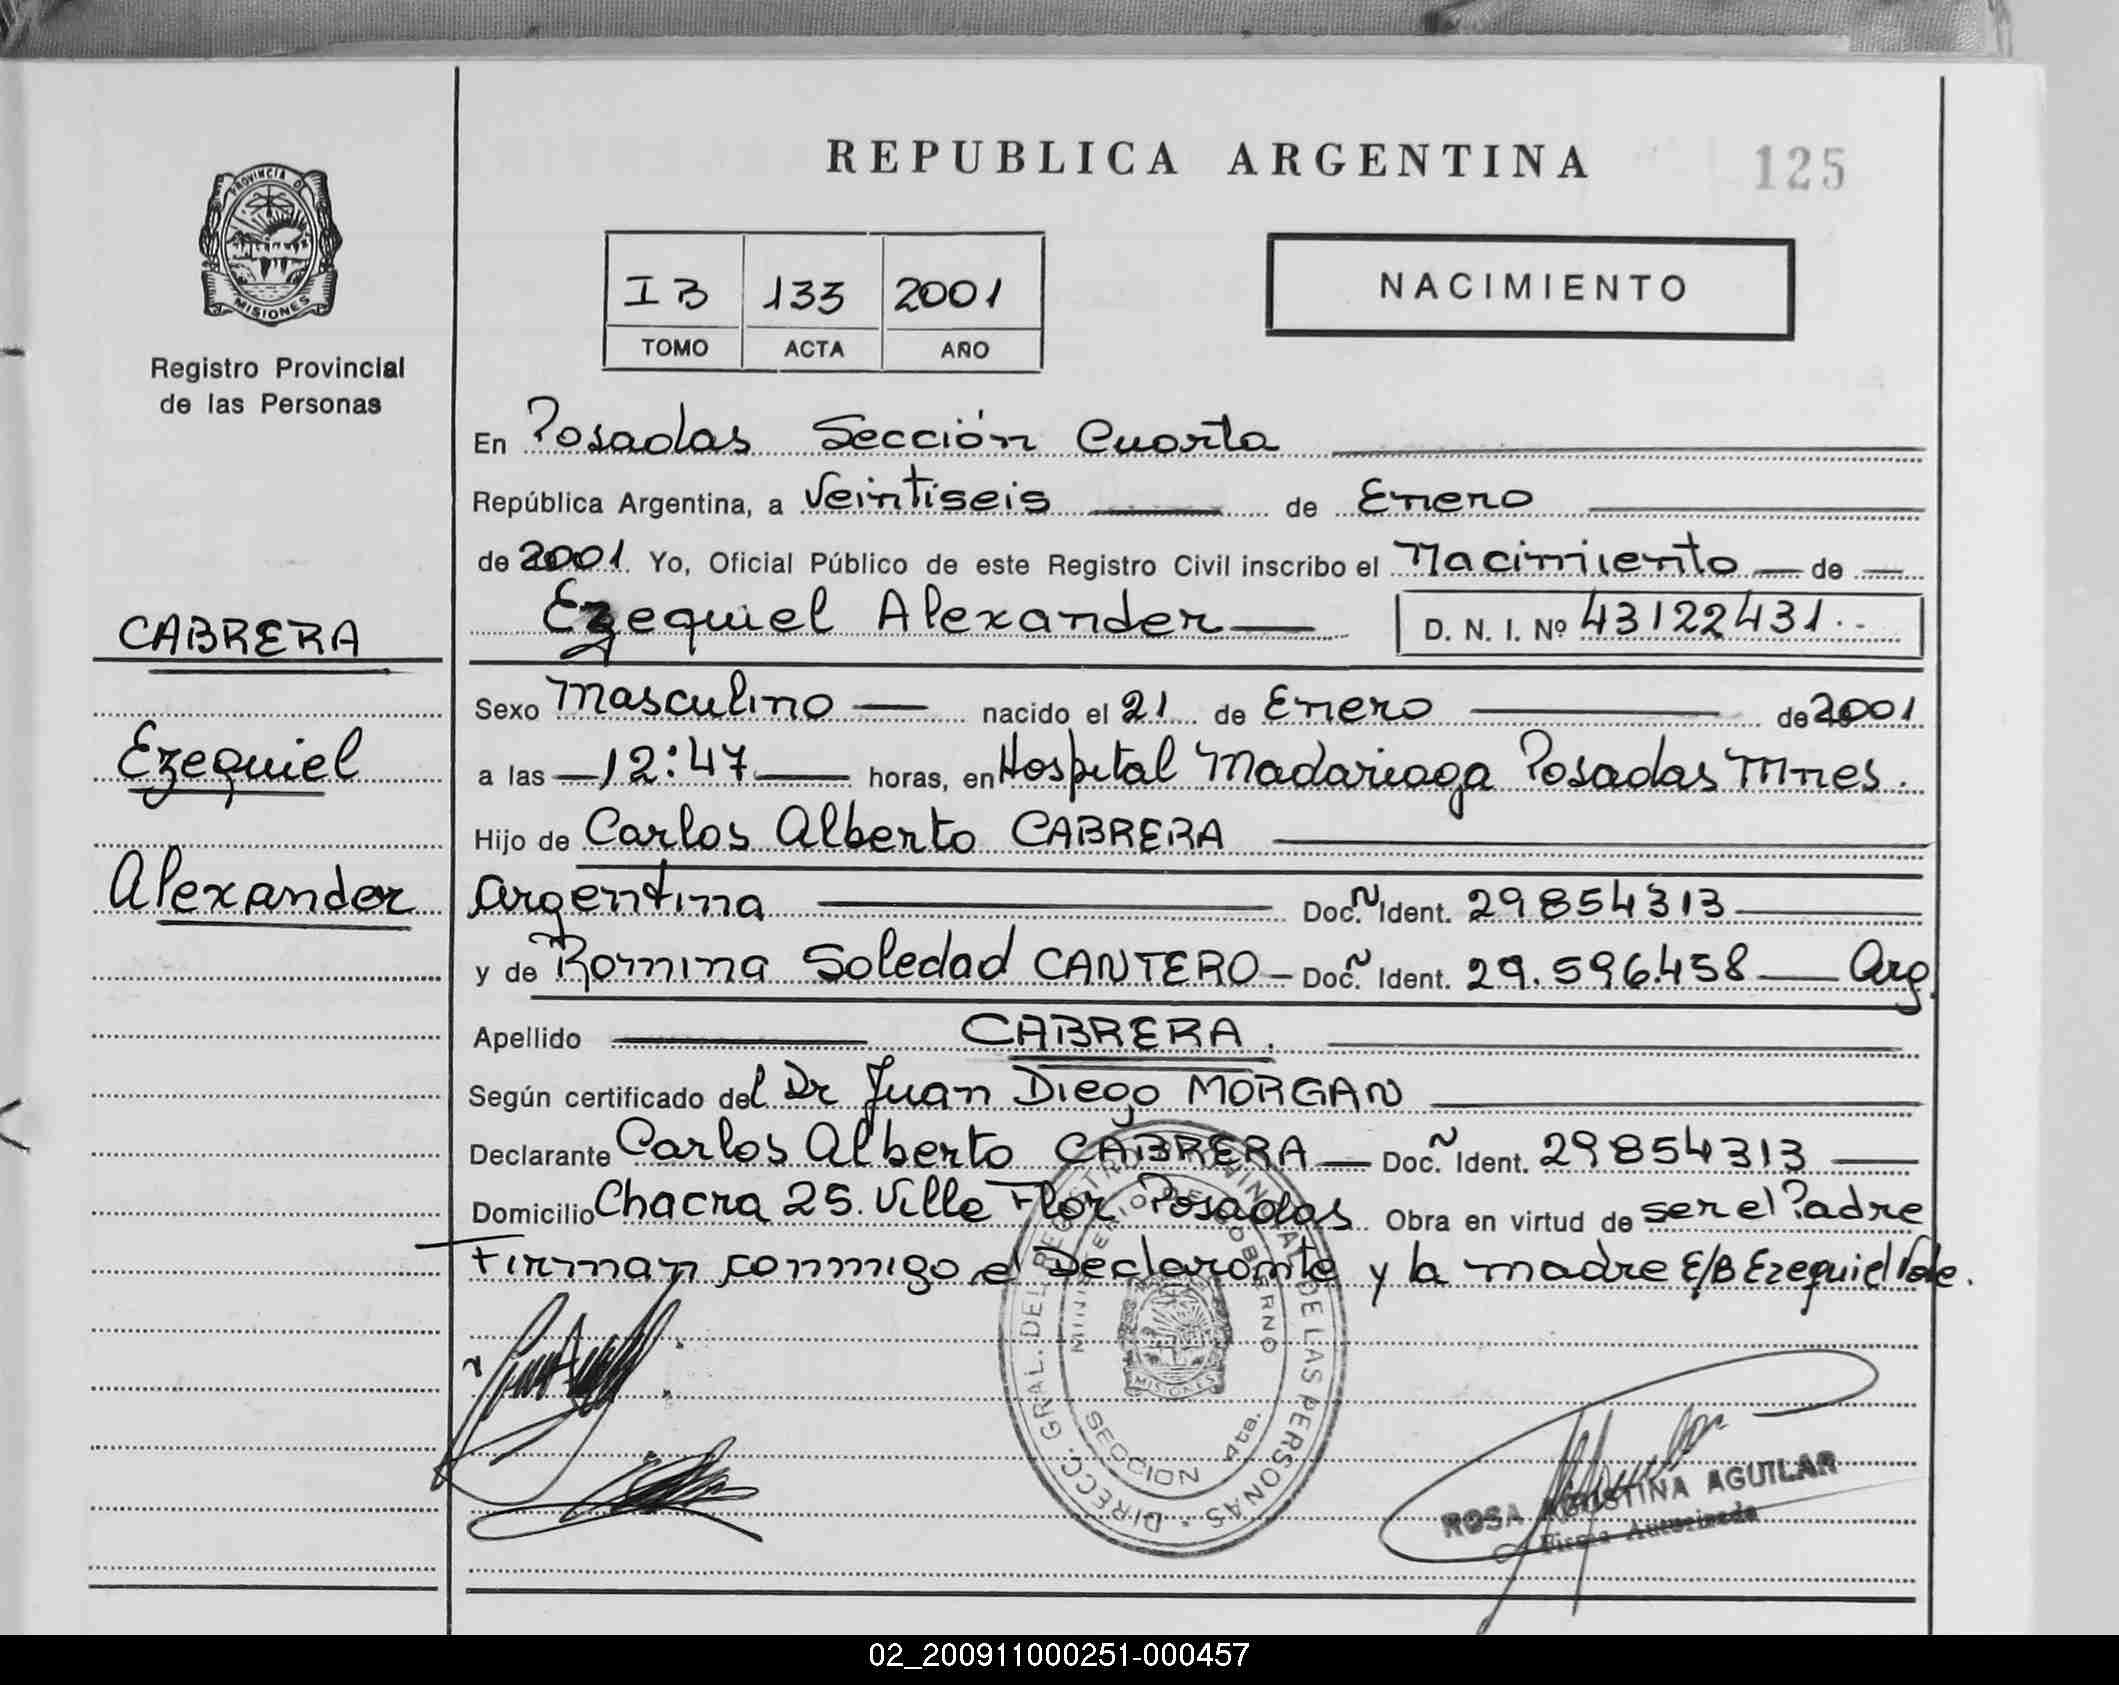 REPUBLICA ARGENTINA
125
PROVINCIA DE
MISIONES
Registro Provincial
de las Personas
I B 133 2001
TOMO ACTA AÑO
NACIMIENTO
En Posadas Sección Cuarta
República Argentina, a Veintiseis de Enero
de 2001 Yo, Oficial Público de este Registro Civil inscribo el Nacimiento de
Ezequiel Alexander D. N. I. Nº 43122431
CABRERA
Ezequiel
Alexander
Sexo Masculino nacido el 21 de Enero de 2001
a las 12:47 horas, en Hospital Madariaga Posadas Mnes.
Hijo de Carlos Alberto CABRERA
Argentina Doc. Ñ Ident. 29854313
y de Romina Soledad CANTERO Doc. Ñ Ident. 29.596.458 Arg.
Apellido CABRERA.
Según certificado del Dr Juan Diego MORGAN
Declarante Carlos Alberto CABRERA Doc. Ñ Ident. 29854313
Domicilio Chacra 25. Villa Flor Posadas Obra en virtud de ser el Padre
Firman conmigo el Declarante y la madre E/B Ezequiel Vale.
DIRECC. GRAL. DEL REGISTRO PROVINCIAL DE LAS PERSONAS
MINISTERIO DE GOBIERNO
MISIONES
SECCION 4ta.
ROSA AGUSTINA AGUILAR
Firma Autorizada
02_200911000251-000457